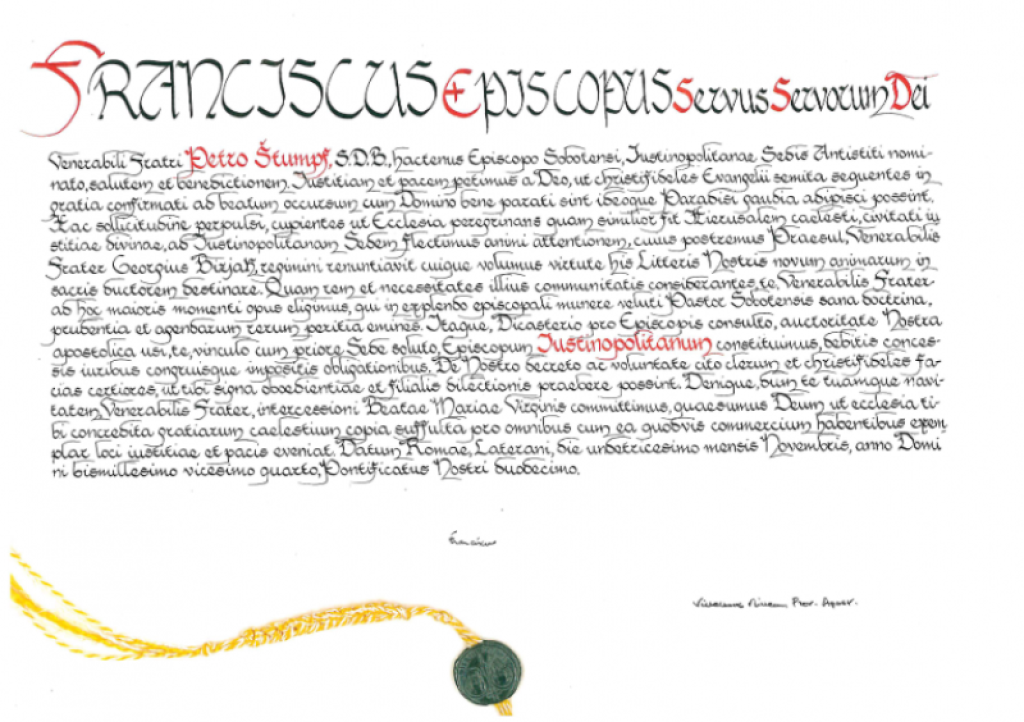 FRANCISCUS EPISCOPUS Servus Servorum Dei
Venerabili Fratri Petro Štumpf, S.D.B., hactenus Episcopo Sobotensi, Iustinopolitanae Sedis Antistiti nomi-
nato, salutem et benedictionem. Iustitiam et pacem petimus a Deo, ut christifideles Evangelii semita sequentes in
gratia confirmati ad beatum occursum cum Domino bene parati sint ideoque Paradisi gaudia adipisci possint.
Hac sollicitudine perpulsi, cupientes ut Ecclesia peregrinans quam similior fit Hierusalem caelesti, civitati iu
stitiae divinae, ad Iustinopolitanam Sedem flectimus animi attentionem, cuius postremus Praesul, Venerabilis
Frater Georgius Bizjak, regimini renuntiavit cuique volumus virtute his Litteris Nostris novum animarum in
sacris ductorem destinare. Quam rem et necessitates illius communitatis considerantes, te, Venerabilis Frater
ad hoc maioris momenti opus eligimus, qui in explendo episcopali munere veluti Pastor Sobotensis sana doctrina,
prudentia et agendarum rerum peritia emines. Itaque, Dicasterio pro Episcopis consulto, auctoritate Nostra
apostolica usi, te, vinculo cum priore Sede soluto, Episcopum Iustinopolitanum constituimus, debitis conces-
sis iuribus congruisque impositis obligationibus. De Nostro decreto ac voluntate cito clerum et christifideles fa-
cias certiores, ut tibi signa oboedientiae et filialis dilectionis praebere possint. Denique, dum te tuamque navi-
tatem, Venerabilis Frater, intercessioni Beatae Mariae Virginis committimus, quaesumus Deum ut ecclesia ti-
bi concredita gratiarum caelestium copia suffulta pro omnibus cum ea quodvis commercium habentibus exem
plar loci iustitiae et pacis eveniat. Datum Romae, Laterani, die undetricesimo mensis Novembris, anno Domi
ni bismillesimo vicesimo quarto, Pontificatus Nostri duodecimo.
Franciscus
Prot. Apost.